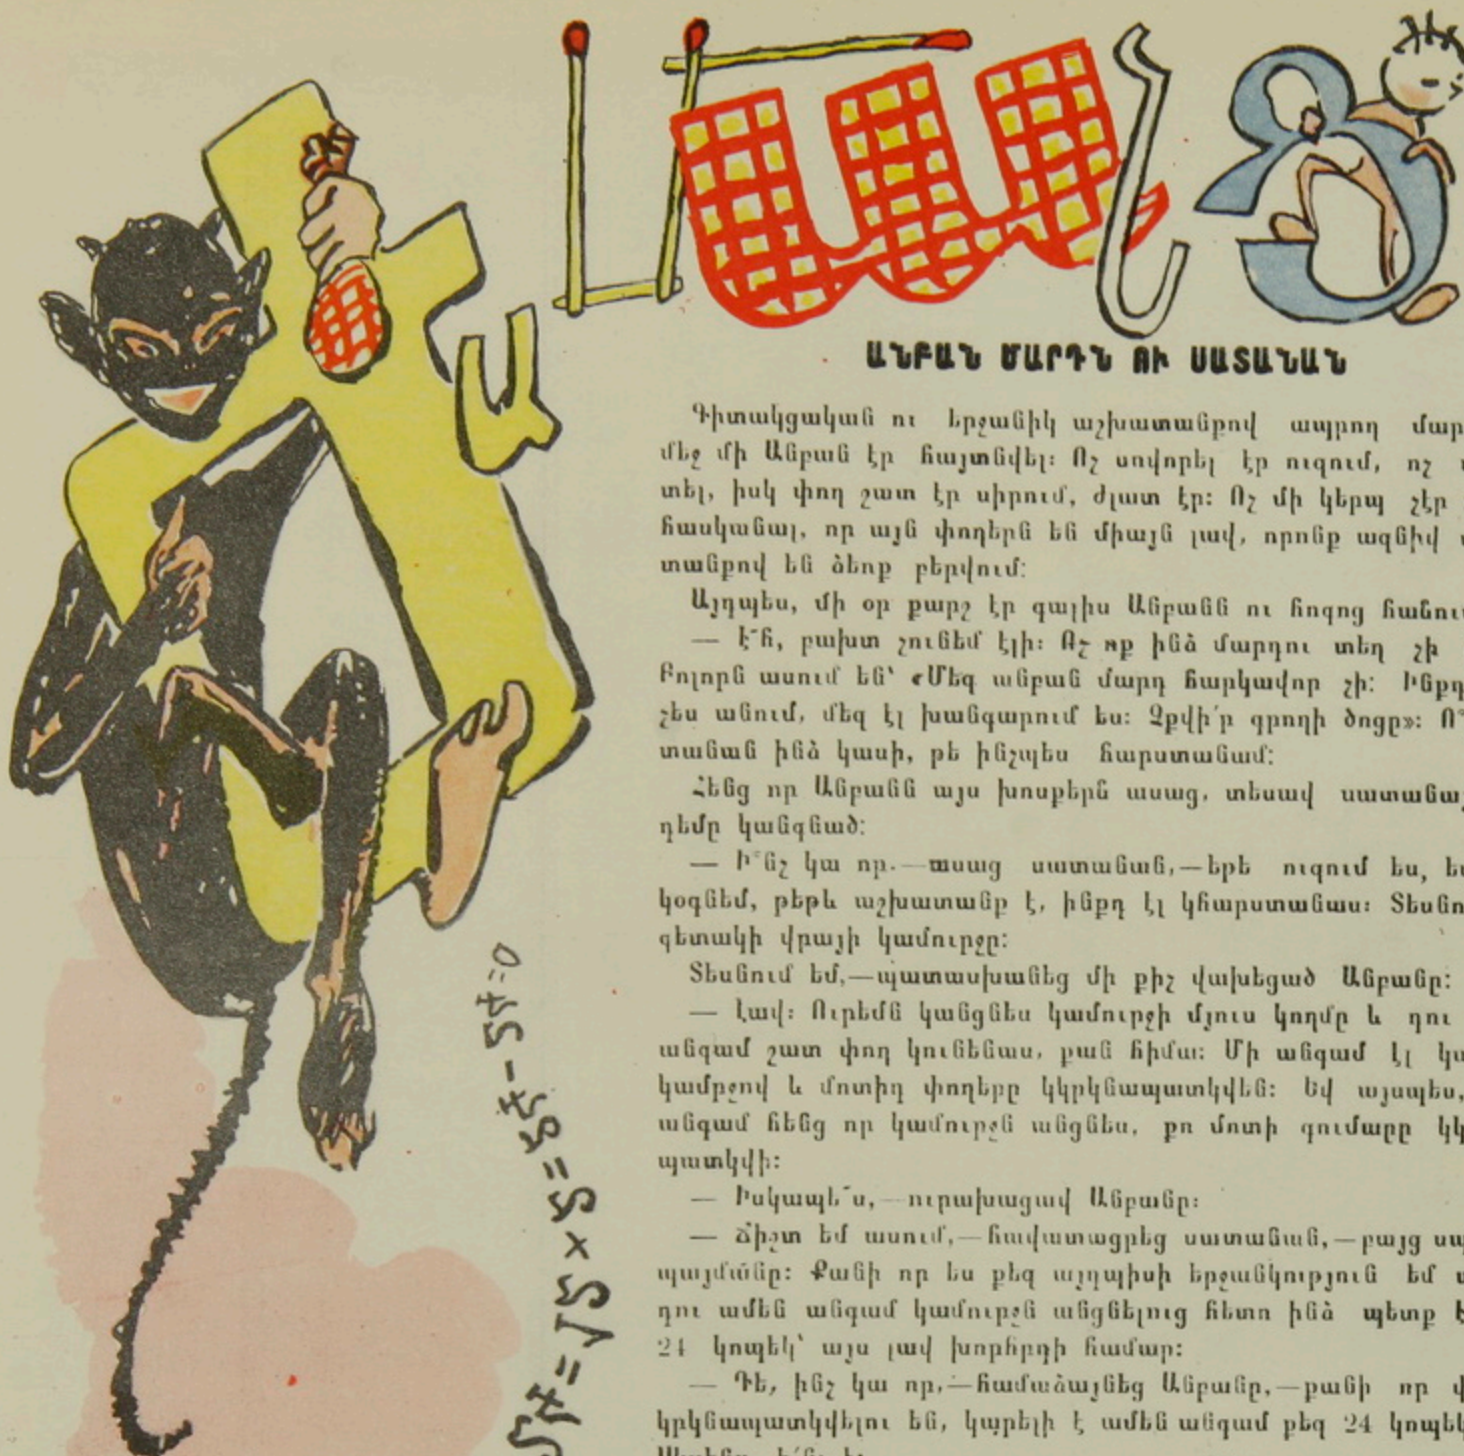 ԱՆԲԱՆ ՄԱՐԴՆ ՈՒ ՍԱՏԱՆԱՆ
Գիտակցական ու երջանիկ աշխատանքով ապրող մար
մեջ մի Անբան էր հայտնվել։ Ոչ սովորել էր ուզում, ոչ
տել, իսկ փող շատ էր սիրում, ժլատ էր։ Ոչ մի կերպ չէր
հասկանալ, որ այն փողերն են միայն լավ, որոնք ազնիվ
տանքով են ձեռք բերվում։
Այդպես, մի օր քարշ էր գալիս Անբանն ու հոգոց հանու
— Է՜հ, բախտ չունեմ էլի։ Ոչ ոք ինձ մարդու տեղ չի
Բոլորն ասում են՝ «Մեզ անբան մարդ հարկավոր չի։ Ինքդ
չես անում, մեզ էլ խանգարում ես։ Չքվի՛ր գրողի ծոցը»։
տանան ինձ կասի, թե ինչպես հարստանամ։
Հենց որ Անբանն այս խոսքերն ասաց, տեսավ սատանայ
դեմը կանգնած։
— Ի՞նչ կա որ.—ասաց սատանան,—եթե ուզում ես,
կօգնեմ, թեթև աշխատանք է, ինքդ էլ կհարստանաս։ Տեսնո
գետակի վրայի կամուրջը։
Տեսնում եմ,—պատասխանեց մի քիչ վախեցած Անբանը։
— Լավ։ Ուրեմն կանցնես կամուրջի մյուս կողմը և դու
անգամ շատ փող կունենաս, քան հիմա։ Մի անգամ էլ կա
կամրջով և մոտիդ փողերը կկրկնապատկվեն։ Եվ այսպես,
անգամ հենց որ կամուրջն անցնես, քո մոտի գումարը կկ
պատկվի։
— Իսկապե՞ս,—ուրախացավ Անբանը։
— Ճիշտ եմ ասում,—հավատացրեց սատանան,—բայց
պայմանը։ Քանի որ ես քեզ այդպիսի երջանկություն եմ
դու ամեն անգամ կամուրջն անցնելուց հետո ինձ պետք
24 կոպեկ՝ այս լավ խորհրդի համար։
— Դե, ինչ կա որ,—համաձայնեց Անբանը,—քանի որ
կրկնապատկվելու են, կարելի է ամեն անգամ քեզ 24 կոպեկ